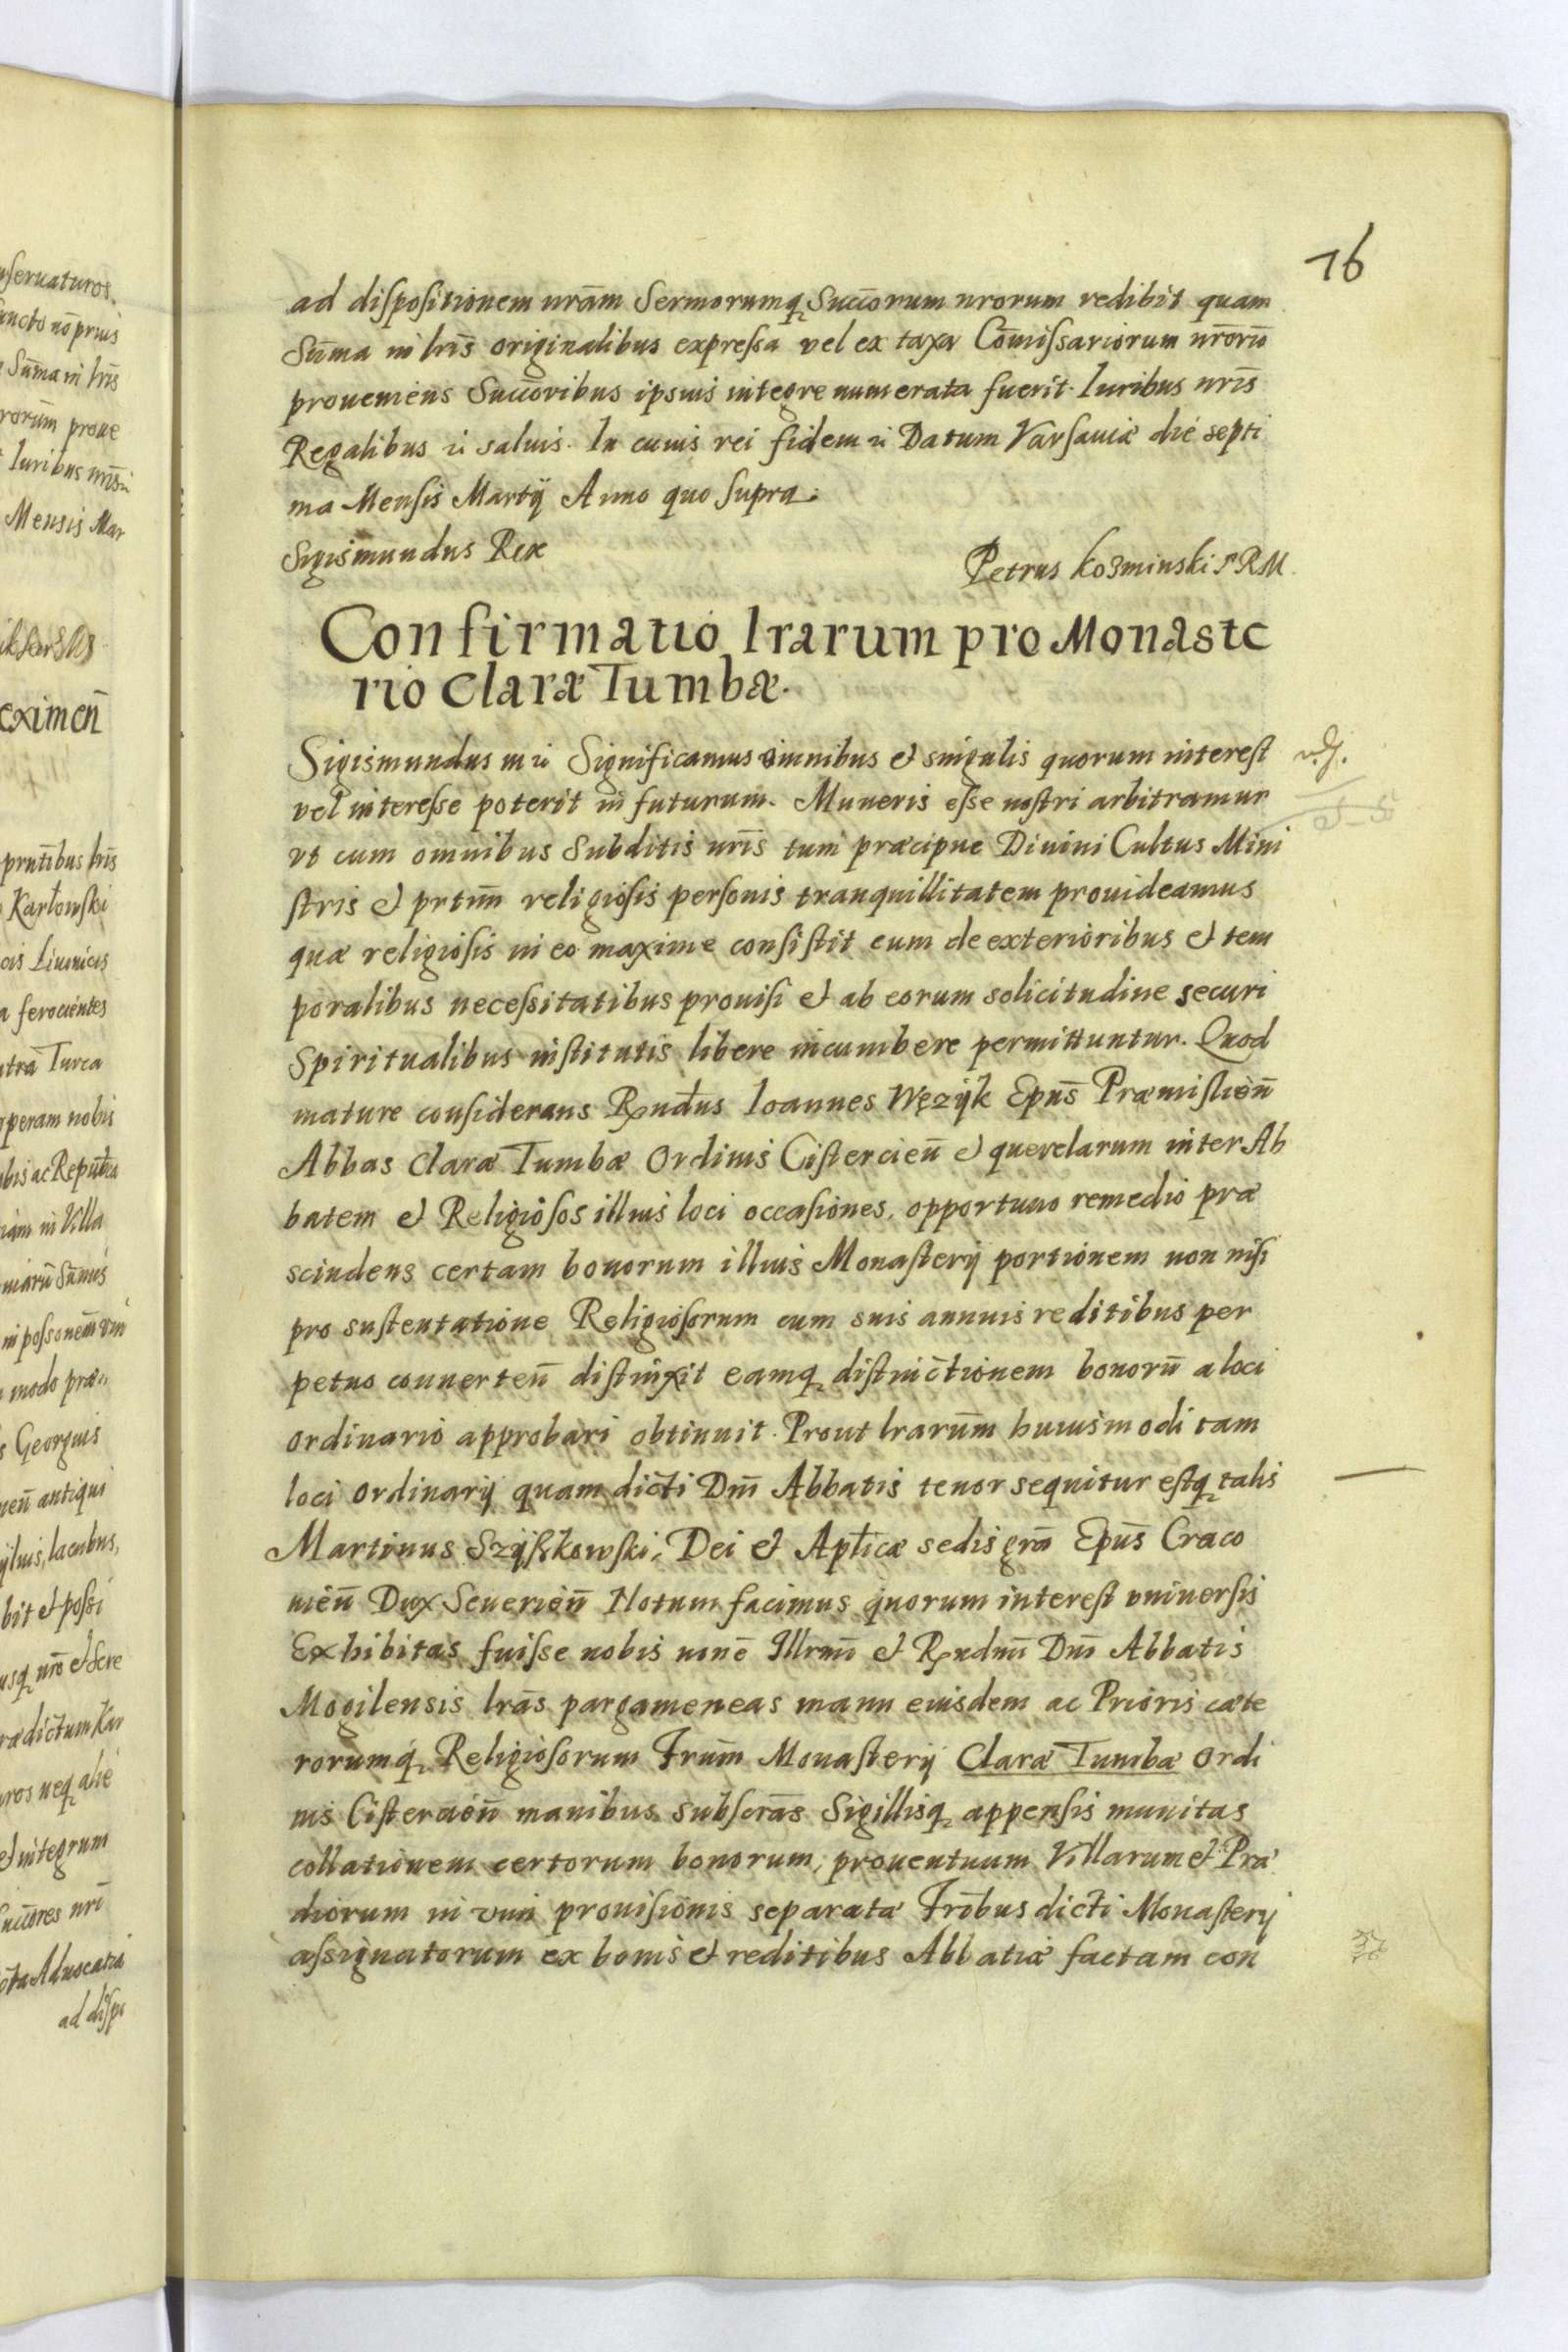 76
ad dispositionem nrām Sermorumq Succorum nrorum redibit quam
Sūma in lrīs originalibus expressa vel ex taxa Com̄issariorum nrorū
proveniens Succoribus ipsius integre numerata fuerit. Iuribus nrīs
Regalibus ꝛc salvis. In cuius rei fidem ꝛc Datum Varsaviæ die septi
ma Mensis Martij Anno quo supra.
Sigismundus Rex
Petrus Kozminski SRM.
Confirmatio lrarum pro Monaste
rio Claræ Tumbæ.
Sigismundus III ꝛc Significamus omnibus et singulis quorum interest
vel interesse poterit in futurum. Muneris esse nostri arbitramur
vt cum omnibus Subditis nrīs tum præcipue Divini Cultus Mini
stris et prtīm religiosis personis tranquillitatem provideamus
quæ religiosis in eo maxime consistit cum de exterioribus et tem
poralibus necessitatibus provisi et ab eorum solicitudine securi
Spiritualibus institutis libere incumbere permittuntur. Quod
mature considerans Rndus Ioannes Węzÿk Epūs Præmislien̄
Abbas Claræ Tumbæ Ordinis Cistercien̄ et querelarum inter Ab
batem et Religiosos illius loci occasiones, opportuno remedio præ
scindens certam bonorum illius Monasterij portionem non nisi
pro sustentatione Religiosorum cum suis annuis reditibus per
petuo converten̄ distinxit eamq distinctionem bonorū a loci
ordinario approbari obtinuit. Prout lrarūm huiusmodi tam
loci Ordinarij quam dicti Dnī Abbatis tenor sequitur estq talis
Martinus Szÿszkowski, Dei et Apticæ sedis grā Epūs Craco
vien̄ Dux Severien̄ Notum facimus quorum interest vniversis
Exhibitas fuisse nobis noīē Illrmī et Rndmī Dnī Abbatis
Mogilensis lrās pargameneas manu eiusdem ac Prioris cæte
rorumq Religiosorum Frum̄ Monasterij Claræ Tumbæ Ordi
nis Cistercien̄ manibus subscrās Sigillisq appensis munitas
collationem certorum bonorum, proventuum Villarum et Præ
diorum in vim provisionis separatæ Fribus dicti Monasterij
assignatorum ex bonis et reditibus Abbatiæ factam con